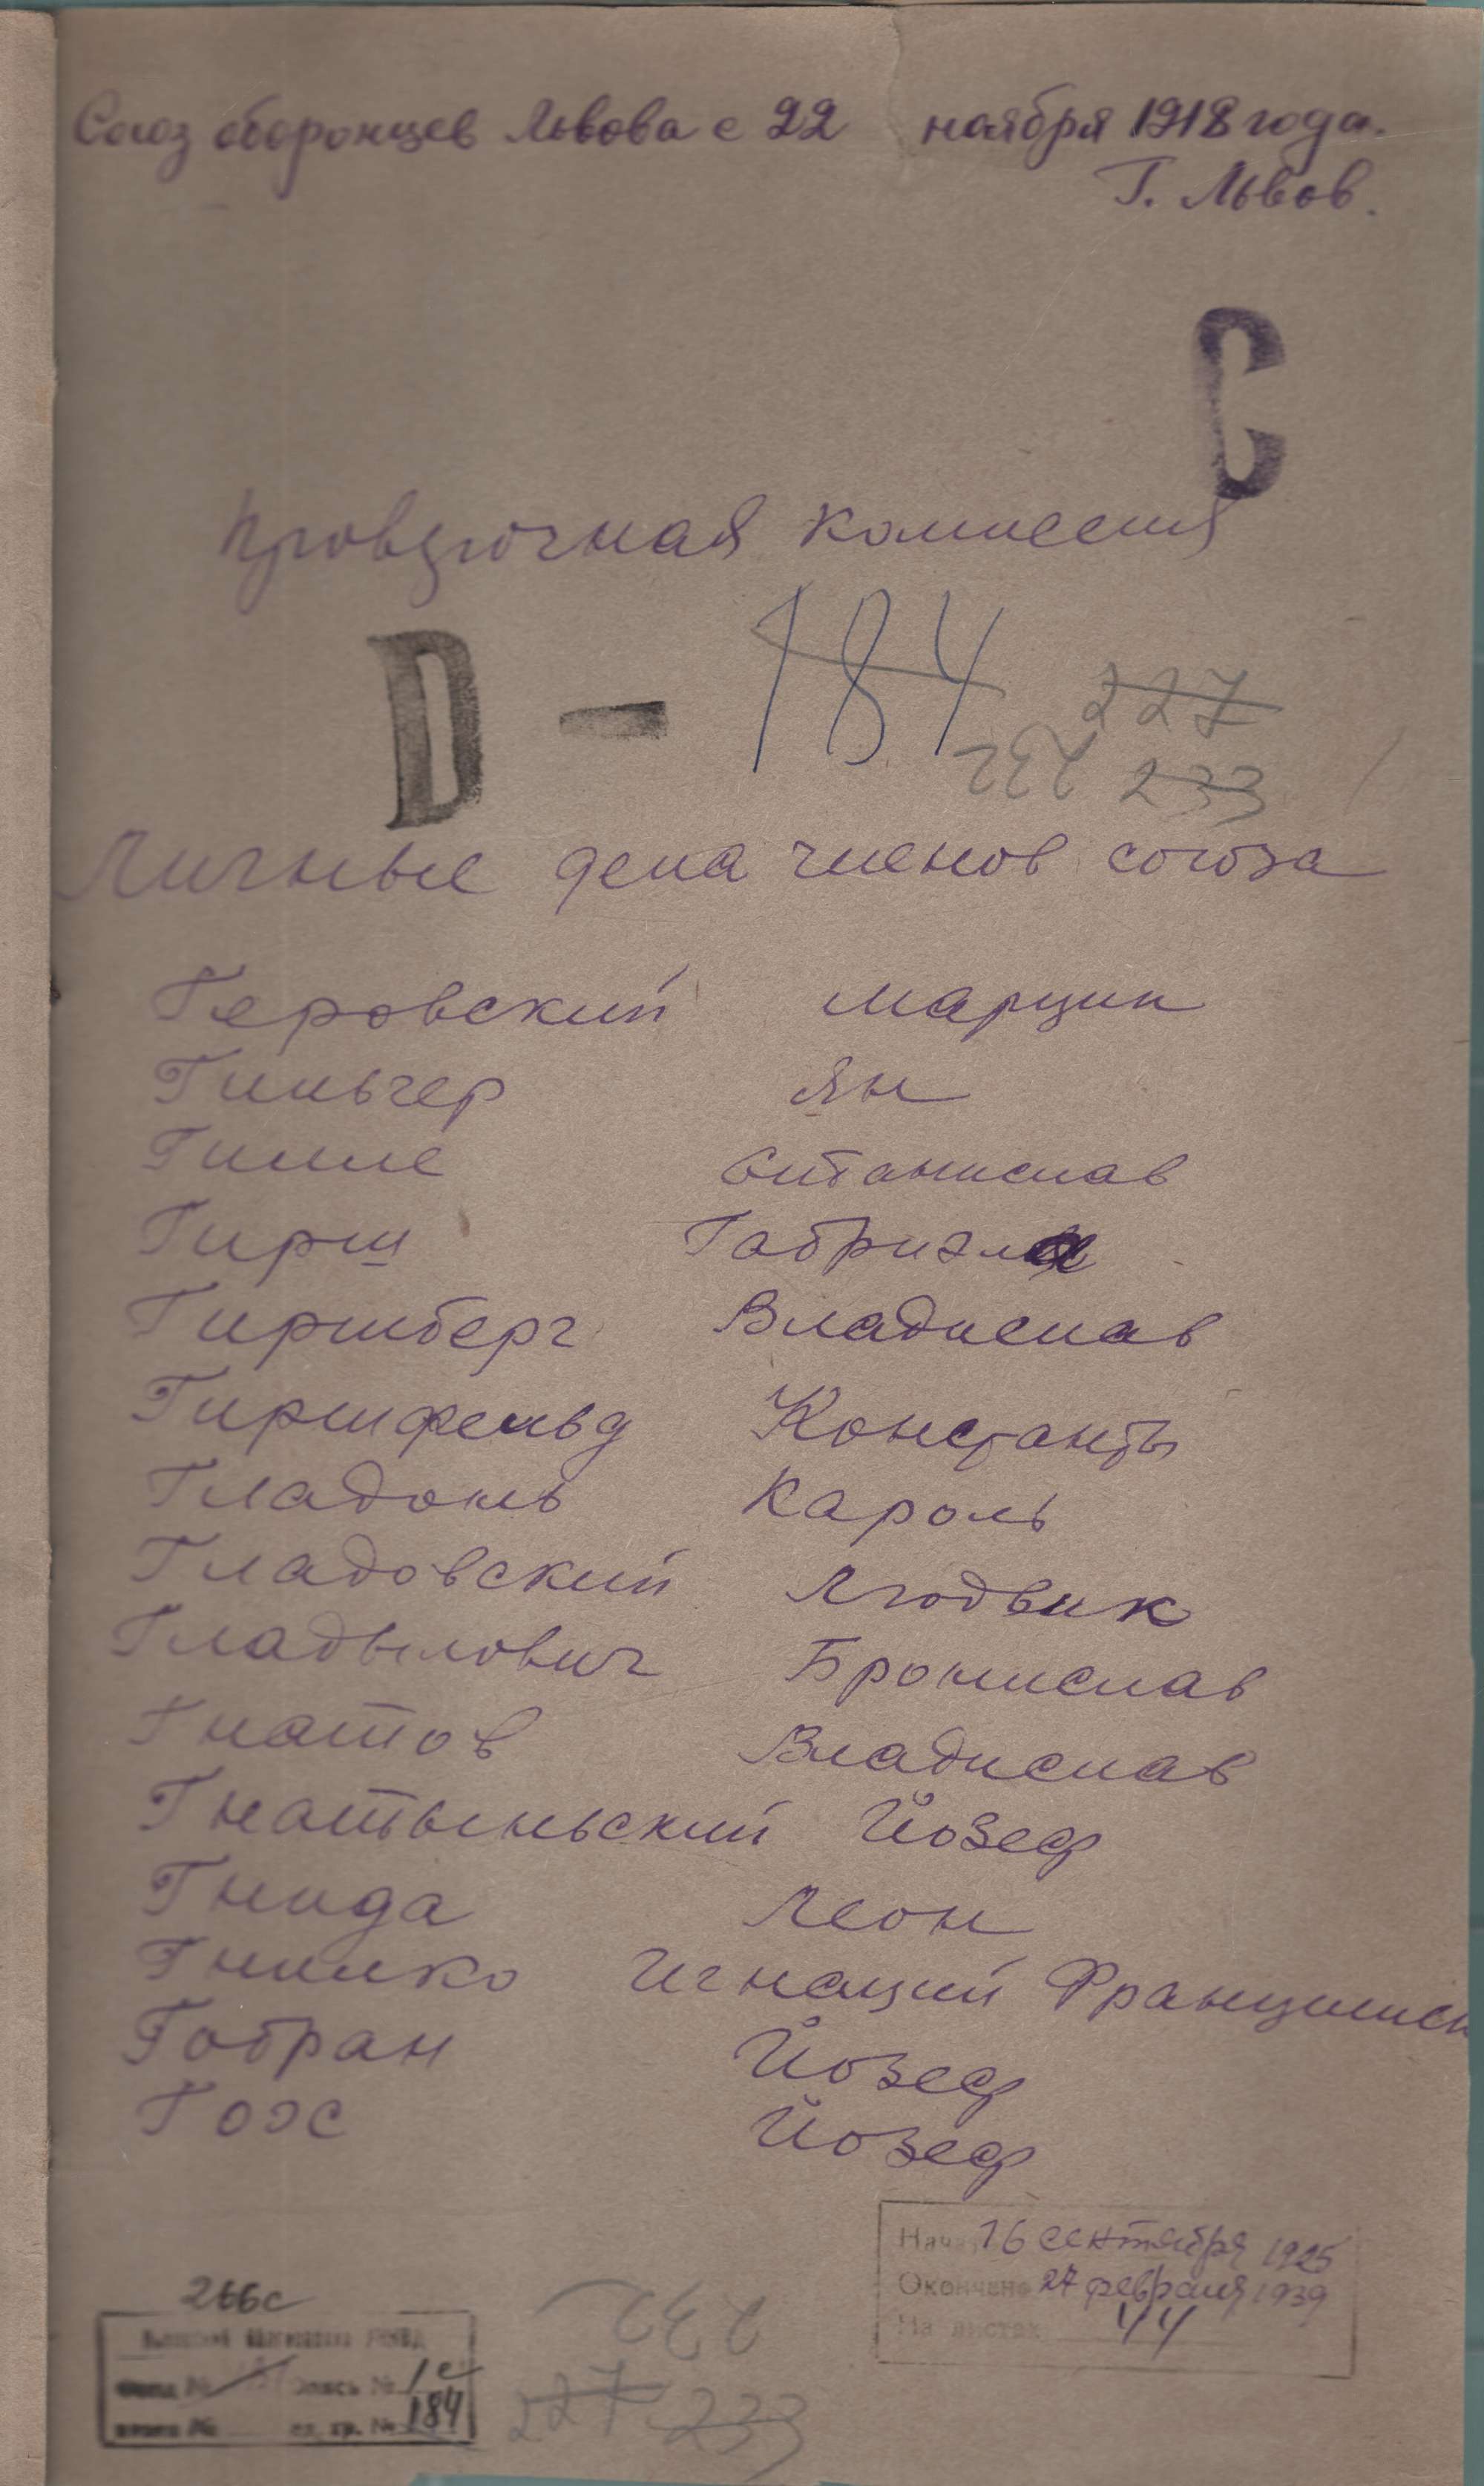 Союз оборонцев Львова с 22 ноября 1918 года.
Г. Львов.
С
Проверочная комиссия
D - 184
227
232 233
Личные дела членов союза
Геровский Марцин
Гильчер Ян
Гилле Станислав
Гирш Габриэль
Гиршберг Владислав
Гиршфельд Константы
Гладонь Кароль
Гладовский Людвик
Гладылович Бронислав
Гнатов Владислав
Гнатыньский Йозеф
Гнида Леон
Гнилко Игнаций Францишек
Гобран Йозеф
Гоос Йозеф
Начато 16 сентября 1925
Окончено 27 февраля 1939
На листах 44
266с
Опись № 1с
ед. хр. № 184
232
227 233